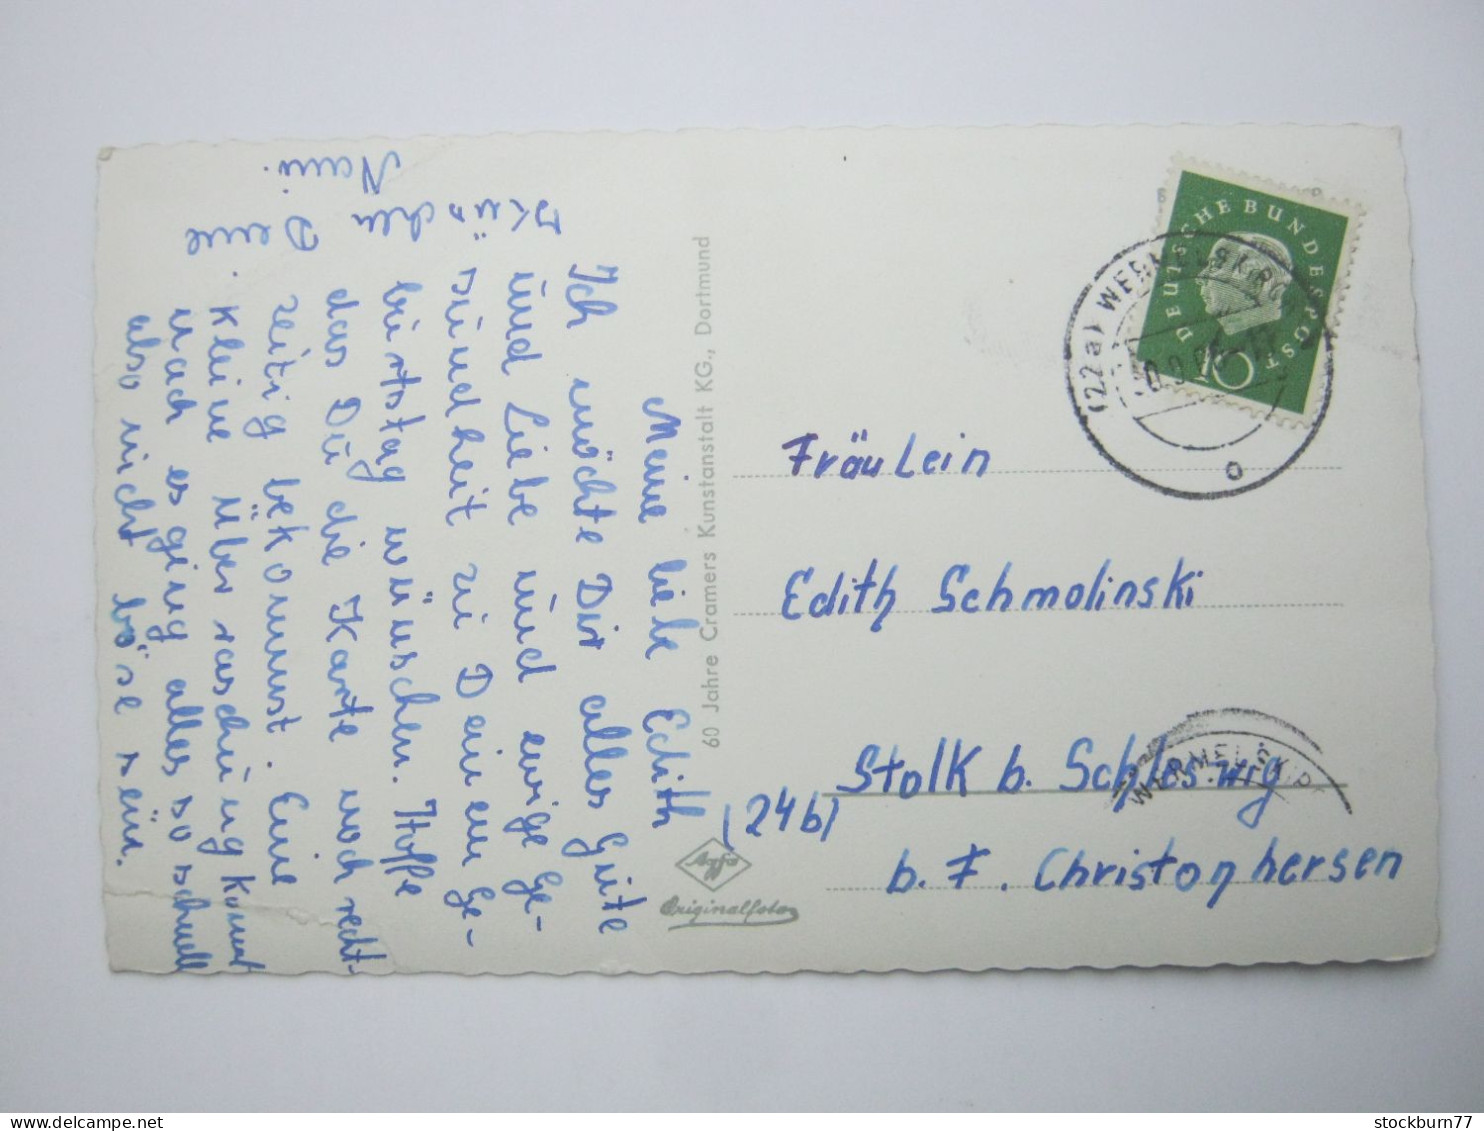 Meine liebe Edith
Ich möchte Dir alles Gute
und Liebe und ewige Ge-
sundheit zu Deinem Ge-
burtstag wünschen. Hoffe
das Du die Karte noch recht-
zeitig bekommst. Eine
kleine Überraschung kommt
nach es ging alles so schnell
also nicht böse sein.
Küschen Deine
60 Jahre Cramers Kunstanstalt KG., Dortmund
Agfa
Originalfoto
DEUTSCHE BUNDESPOST
10
(22a) WERMELSKIRCHEN
o
Fräulein
Edith Schmolinski
(24b) Stolk b. Schleswig
b. F. Christophersen
WERMELSKIRC
stockburn77